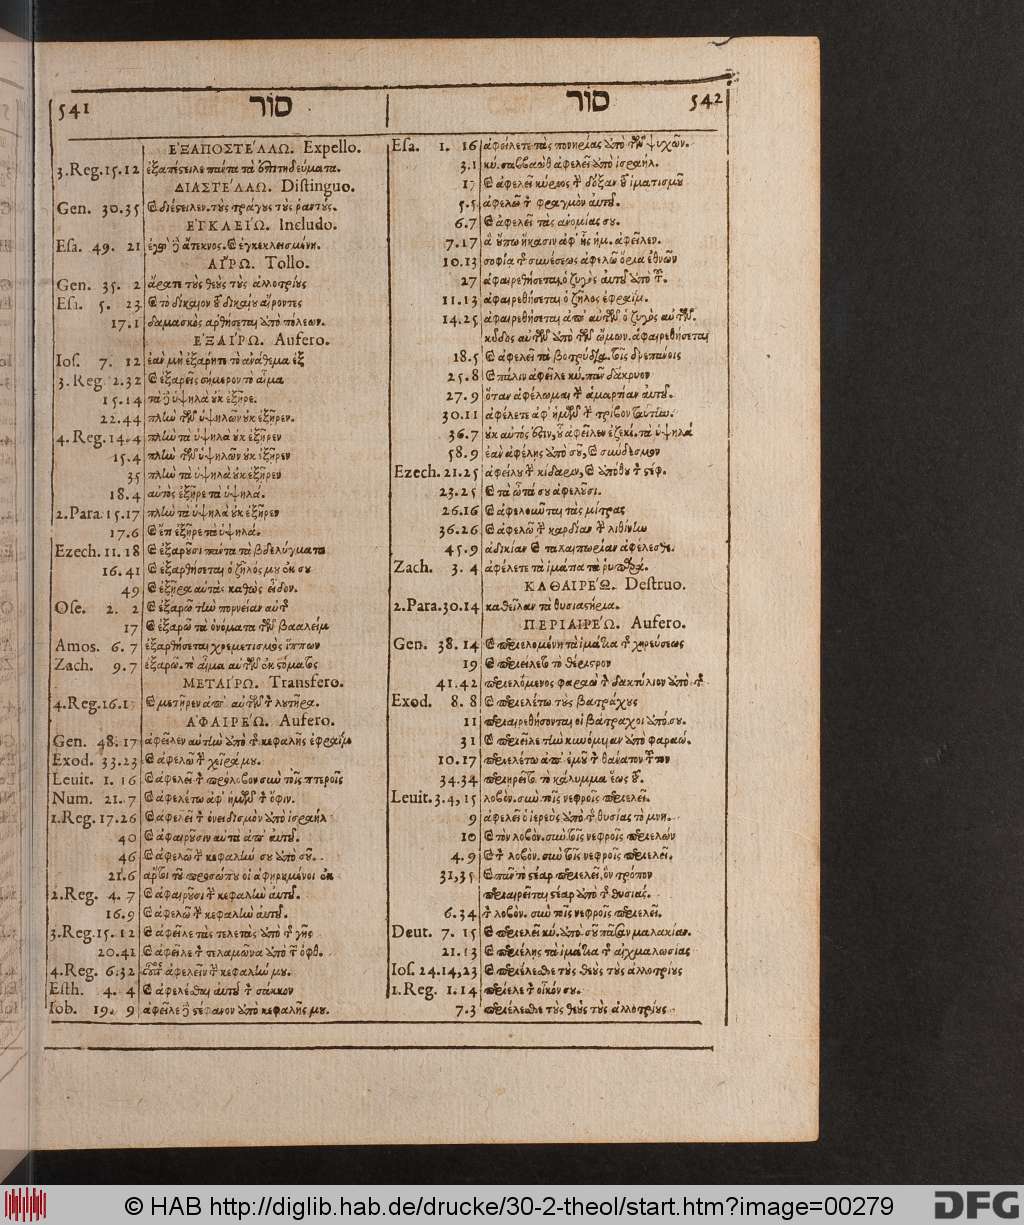 541 סור
ἘΞΑΠΟΣΤΕ'ΛΛΩ. Expello.
3.Reg.15.12 ἐξαπέστειλε πάντα τὰ ἐπιτηδεύματα.
ΔΙΑΣΤΕ'ΛΛΩ. Distinguo.
Gen. 30.35 καὶ διέστειλεν τοὺς τράγους τοὺς ῥαντούς.
ἘΓΚΛΕΙ'Ω. Includo.
Esa. 49. 21 ἐγὼ δὲ ἄτεκνος. καὶ ἐγκεκλεισμένη.
ΑἼΡΩ. Tollo.
Gen. 35. 2 ἄρατε τοὺς θεοὺς τοὺς ἀλλοτρίους
Esa. 5. 23 καὶ τὸ δίκαιον τοῦ δικαίου αἴροντες
17.1 δαμασκὸς ἀρθήσεται ἀπὸ πόλεων.
ἘΞΑΙ'ΡΩ. Aufero.
Ios. 7. 12 ἐὰν μὴ ἐξάρητε τὸ ἀνάθεμα ἐξ
3. Reg. 2.32 καὶ ἐξαρεῖς σήμερον τὸ αἷμα
15.14 τὰ δὲ ὑψηλὰ οὐκ ἐξῆρε.
22.44 πλὴν τῶν ὑψηλῶν οὐκ ἐξῆρεν.
4. Reg. 14.4 πλὴν τὰ ὑψηλὰ οὐκ ἐξῆρεν
15.4 πλὴν τῶν ὑψηλῶν οὐκ ἐξῆρεν
35 πλὴν τὰ ὑψηλὰ οὐκ ἐξῆρεν
18.4 αὐτὸς ἐξῆρε τὰ ὑψηλά.
2.Para. 15.17 πλὴν τὰ ὑψηλὰ οὐκ ἐξῆρεν
17.6 καὶ ἔτι ἐξῆρε τὰ ὑψηλά.
Ezech. 11.18 καὶ ἐξαροῦσι πάντα τὰ βδελύγματα
16.41 καὶ ἐξαρθήσεται ὁ ζῆλός μου ἐκ σου
49 καὶ ἐξῆρα αὐτὰς καθὼς εἶδον.
Ose. 2. 2 καὶ ἐξαρῶ τὴν πορνείαν αὐτῆς
17 καὶ ἐξαρῶ τὰ ὀνόματα τῶν βααλεὶμ
Amos. 6. 7 ἐξαρθήσεται χρεμετισμὸς ἵππων
Zach. 9.7 ἐξαρῶ. τὸ αἷμα αὐτῶν ἐκ στόματος
ΜΕΤΑΙ'ΡΩ. Transfero.
4.Reg.16.17 καὶ μετῆρεν ἀπ' αὐτῶν τὸν λουτῆρα.
ἈΦΑΙΡΕ'Ω. Aufero.
Gen. 48. 17 ἀφεῖλεν αὐτὴν ἀπὸ τῆς κεφαλῆς ἐφραΐμ
Exod. 33.23 καὶ ἀφελῶ τὴν χεῖρά μου.
Leuit. 1. 16 καὶ ἀφελεῖ τὸν πρόλοβον σὺν τοῖς πτεροῖς
Num. 21. 7 καὶ ἀφελέτω ἀφ' ἡμῶν τὸν ὄφιν.
1.Reg. 17.26 καὶ ἀφελεῖ τὸν ὀνειδισμὸν ἀπὸ ἰσραήλ
40 καὶ ἀφαιροῦσιν αὐτὰ ἀπ' αὐτοῦ.
46 καὶ ἀφελῶ τὴν κεφαλήν σου ἀπὸ σοῦ.
21.6 ἄρτοι τοῦ προσώπου οἱ ἀφῃρημένοι ἐκ
2.Reg. 4. 7 καὶ ἀφαιροῦσι τὴν κεφαλὴν αὐτοῦ.
16.9 καὶ ἀφελῶ τὴν κεφαλὴν αὐτοῦ.
3.Reg. 15. 12 καὶ ἀφεῖλε τὰς τελετὰς ἀπὸ τῆς γῆς
20.41 καὶ ἀφεῖλε τὸν τελαμῶνα ἀπὸ τῶν ὀφθ.
4.Reg. 6.32 οὗτος ἀφελεῖν τὴν κεφαλήν μου.
Esth. 4. 4 καὶ ἀφελέσθαι αὐτοῦ τὸν σάκκον
Iob. 19. 9 ἀφεῖλε δὲ στέφανον ἀπὸ κεφαλῆς μου.
סור 542
Esa. 1. 16 ἀφέλετε τὰς πονηρίας ἀπὸ τῶν ψυχῶν.
3.1 κύ. σαββαὼθ ἀφελεῖ ἀπὸ ἰσραήλ.
17 καὶ ἀφελεῖ κύριος τὴν δόξαν τοῦ ἱματισμοῦ
5.5 ἀφελῶ τὸν φραγμὸν αὐτοῦ.
6.7 καὶ ἀφελεῖ τὰς ἀνομίας σου.
7.17 ἃ οὔπω ἥκασιν ἀφ' ἧς ἡμ. ἀφεῖλεν.
10.13 σοφίᾳ τῆς συνέσεως ἀφελῶ ὅρια ἐθνῶν
27 ἀφαιρεθήσεται ὁ ζυγὸς αὐτοῦ ἀπὸ τοῦ.
11.13 ἀφαιρεθήσεται ὁ ζῆλος ἐφραΐμ.
14.25 ἀφαιρεθήσεται ἀπ' αὐτῶν ὁ ζυγὸς αὐτῶν.
κύδος αὐτῶν ἀπὸ τῶν ὤμων. ἀφαιρεθήσεται
18.5 καὶ ἀφελεῖ τὰ βοτρύδια. τοῖς δρεπάνοις
25.8 καὶ πάλιν ἀφεῖλε κύ. πᾶν δάκρυον
27.9 ὅταν ἀφέλωμαι τὴν ἁμαρτίαν αὐτοῦ.
30.11 ἀφέλετε ἀφ' ἡμῶν τὸν τρίβον ταύτην.
36.7 οὐκ αὐτός ἐστιν, οὗ ἀφεῖλεν ἐζεκί. τὰ ὑψηλά
58.9 ἐὰν ἀφέλῃς ἀπὸ σοῦ, καὶ σύνδεσμον
Ezech. 21.25 ἀφείλου τὴν κίδαριν, καὶ ἀπόθου τὸν στέφ.
23.25 καὶ τὰ ὦτά σου ἀφελοῦσι.
26.16 καὶ ἀφελοῦνται τὰς μίτρας
36.26 καὶ ἀφελῶ τὴν καρδίαν τὴν λιθίνην
45.9 ἀδικίαν καὶ ταλαιπωρίαν ἀφέλεσθε.
Zach. 3. 4 ἀφέλετε τὰ ἱμάτια τὰ ῥυπαρά.
ΚΑΘΑΙΡΕ'Ω. Destruo.
2.Para.30.14 καθεῖλαν τὰ θυσιαστήρια.
ΠΕΡΙΑΙΡΕ'Ω. Aufero.
Gen. 38. 14 καὶ περιελομένη τὰ ἱμάτια τῆς χηρεύσεως
19 καὶ περιείλετο τὸ θέριστρον
41.42 περιελόμενος φαραὼ τὸν δακτύλιον ἀπὸ τῆς.
Exod. 8. 8 καὶ περιελέτω τοὺς βατράχους
11 περιαιρεθήσονται οἱ βάτραχοι ἀπό σου.
31 καὶ περιεῖλε τὴν κυνόμυιαν ἀπὸ φαραώ.
10.17 περιελέτω ἀπ' ἐμοῦ τὸν θάνατον τοῦτον
34.34 περιῃρεῖτο τὸ κάλυμμα ἕως τοῦ.
Leuit. 3.4, 15 λοβὸν. σὺν τοῖς νεφροῖς περιελεῖ.
9 ἀφελεῖ ὁ ἱερεὺς ἀπὸ τῆς θυσίας τὸ μνη.
10 καὶ τὸν λοβὸν. σὺν τοῖς νεφροῖς περιελών
4. 9 καὶ τὸν λοβὸν. σὺν τοῖς νεφροῖς περιελεῖ.
31,35 καὶ πᾶν τὸ στέαρ περιελεῖ, ὃν τρόπον
περιαιρεῖται στέαρ ἀπὸ τῆς θυσίας.
6.34 τὸν λοβὸν. σὺν τοῖς νεφροῖς περιελεῖ.
Deut. 7. 15 καὶ περιελεῖ κύ. ἀπὸ σοῦ πᾶσαν μαλακίαν.
21.13 καὶ περιέλῃς τὰ ἱμάτια τῆς αἰχμαλωσίας
Ios. 24.14,23 καὶ περιέλεσθε τοὺς θεοὺς τοὺς ἀλλοτρίους
1.Reg. 1.14 περίελε τὸν οἶκόν σου.
7.3 περιέλεσθε τοὺς θεοὺς τοὺς ἀλλοτρίους
© HAB http://diglib.hab.de/drucke/30-2-theol/start.htm?image=00279
DFG